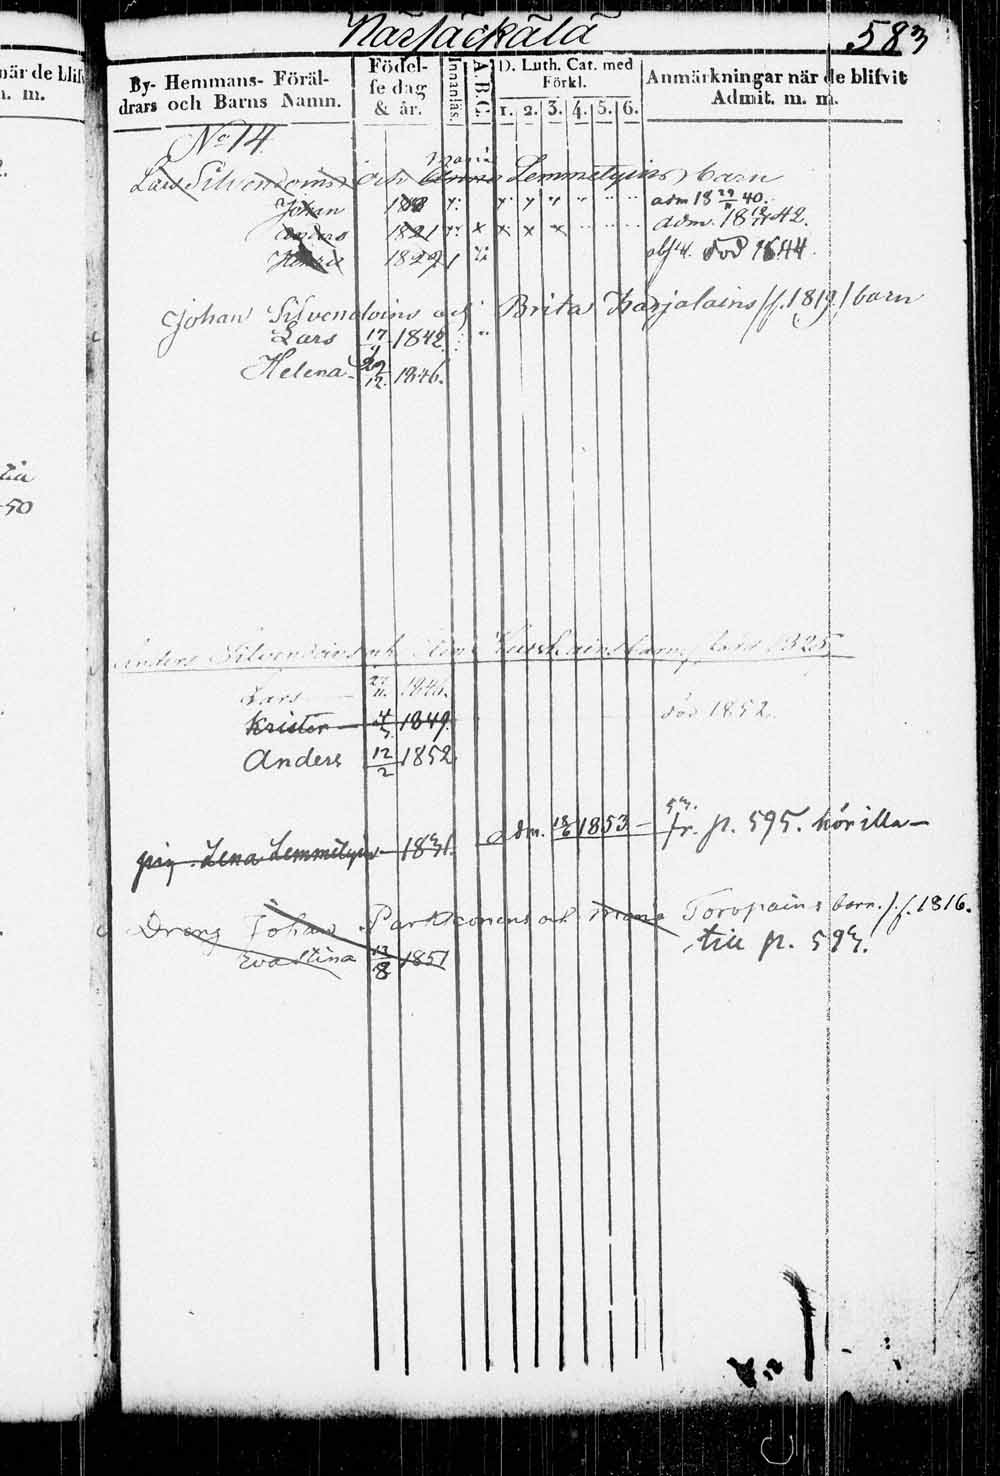 när de blifv
n. m.
tia
-50
Närsäckälä 583
By- Hemmans- Föräl-
drars och Barns Namn.
Födel-
se dag
& år.
Innanläs.
A.B.C.
D. Luth. Cat. med
Förkl.
1. 2. 3. 4. 5. 6.
Anmärkningar när de blifvit
Admit. m. m.
No 14
Maria
Lars Silvendoins och Anna Lemmetyins barn
Johan adm 18 29/11 40.
Anders 1821 x x x x adm. 18 42.
död 1844.
Johan Silvendoins och Brita Karjalains /f. 1819./ barn
Lars 17 1842
Helena 29/12 1846.
Anders Silvendoins och barn född 1825
Lars 27/11. 1846.
Krister 4/5 1849. död 1852.
Anders 12/2 1852
pig. Lena Lemmetyin 1831. adm. 18/6 1853 — fr. p. 595. hör illa —
Dreng Johan och Maria Toropains barn. /f. 1816.
Eva Stina 12/8 1851 till p. 593.